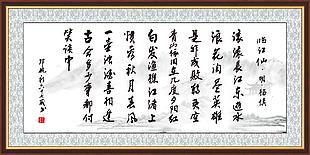 临江仙 明 杨慎
滚滚長江東逝水
浪花淘尽英雄
是非成敗转头空
青山依旧在几度夕阳红
白发渔樵江渚上
惯看秋月春風
一壶浊酒喜相逢
古今多少事都付
笑谈中